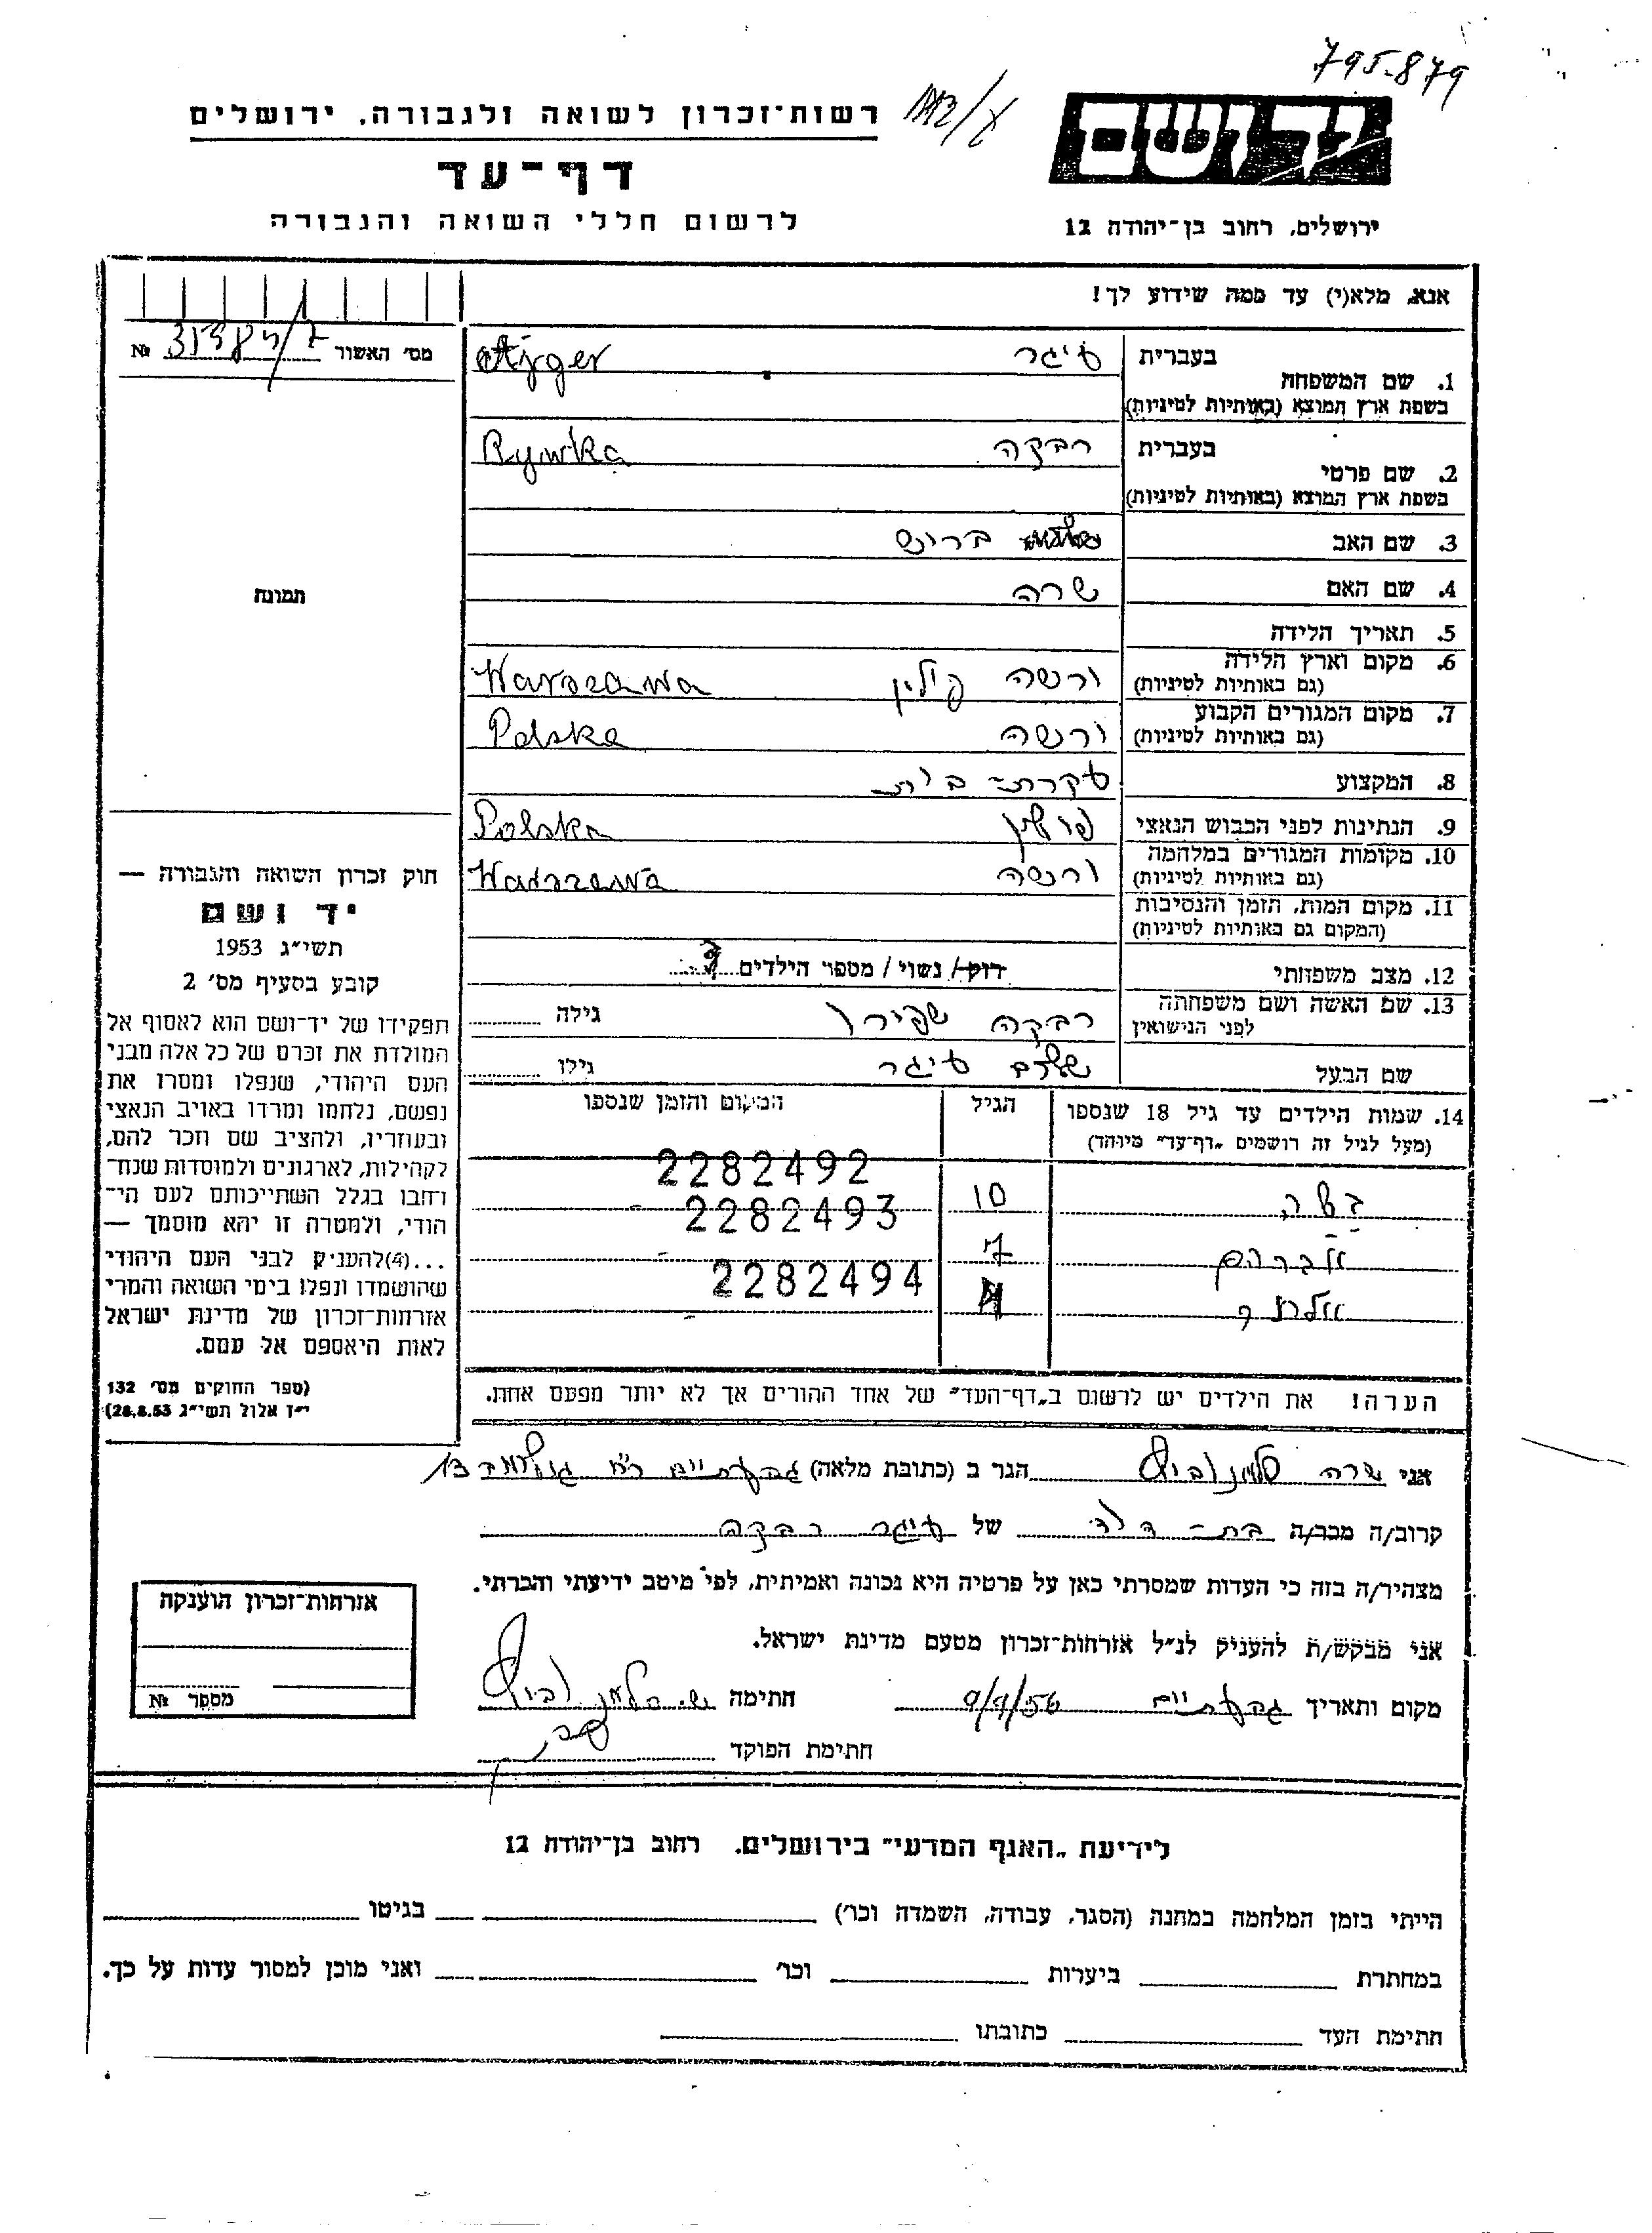 795.879
רשות־זכרון לשואה ולגבורה, ירושלים
יד ושם
דף־עד
לרשום חללי השואה והגבורה
ירושלים, רחוב בן־יהודה 12
אנא, מלא(י) עד כמה שידוע לך!
מס׳ האשור №
1. שם המשפחה בעברית עיגר Ajger
בשפת ארץ המוצא (באותיות לטיניות)
2. שם פרטי בעברית רבקה Rywka
בשפת ארץ המוצא (באותיות לטיניות)
3. שם האב ברוש
4. שם האם שרה
5. תאריך הלידה
6. מקום וארץ הלידה ורשה פולין Warszawa
(גם באותיות לטיניות)
7. מקום המגורים הקבוע ורשה Polska
(גם באותיות לטיניות)
8. המקצוע עקרת בית
9. הנתינות לפני הכבוש הנאצי פולין Polska
10. מקומות המגורים במלחמה ורשה Warszawa
(גם באותיות לטיניות)
11. מקום המות, הזמן והנסיבות
(המקום גם באותיות לטיניות)
12. מצב משפחתי רוק/ נשוי / מספר הילדים 3
13. שם האשה ושם משפחתה לפני הנישואין רבקה שפירו גילה
שם הבעל שלום עיגר גילו
14. שמות הילדים עד גיל 18 שנספו הגיל המקום והזמן שנספו
(מעל לגיל זה רושמים „דף־עד״ מיוחד)
2282492
10 2282493
אברהם 7
2282494
הערה! את הילדים יש לרשום ב„דף־העד״ של אחד ההורים אך לא יותר מפעם אחת.
תמונה
חוק זכרון השואה והגבורה —
יד ושם
תשי״ג 1953
קובע בסעיף מס׳ 2
תפקידו של יד־ושם הוא לאסוף אל
המולדת את זכרם של כל אלה מבני
העם היהודי, שנפלו ומסרו את
נפשם, נלחמו ומרדו באויב הנאצי
ובעוזריו, ולהציב שם וזכר להם,
לקהילות, לארגונים ולמוסדות שנח־
רחבו בגלל השתייכותם לעם הי־
הודי, ולמטרה זו יהא מוסמך —
...(4)להעניק לבני העם היהודי
שהושמדו ונפלו בימי השואה והמרי
אזרחות־זכרון של מדינת ישראל
לאות היאספם אל עמם.
(ספר החוקים מס׳ 132
י״ז אלול תשי״ג 28.8.53)
אני שרה הגר ב (כתובת מלאה) גבעתיים 13
קרוב/ה מכר/ה בת־דודה של עיגר רבקה
מצהיר/ה בזה כי העדות שמסרתי כאן על פרטיה היא נכונה ואמיתית, לפי מיטב ידיעתי והכרתי.
אני מבקש/ת להעניק לנ״ל אזרחות־זכרון מטעם מדינת ישראל.
מקום ותאריך גבעתיים 9/9/56 חתימה
חתימת הפוקד
אזרחות־זכרון הוענקה
מספר №
לידיעת „האגף המדעי״ בירושלים. רחוב בן־יהודה 12
הייתי בזמן המלחמה במחנה (הסגר, עבודה, השמדה וכו׳) בגיטו
במחתרת ביערות וכו׳ ואני מוכן למסור עדות על כך.
חתימת העד כתובתו